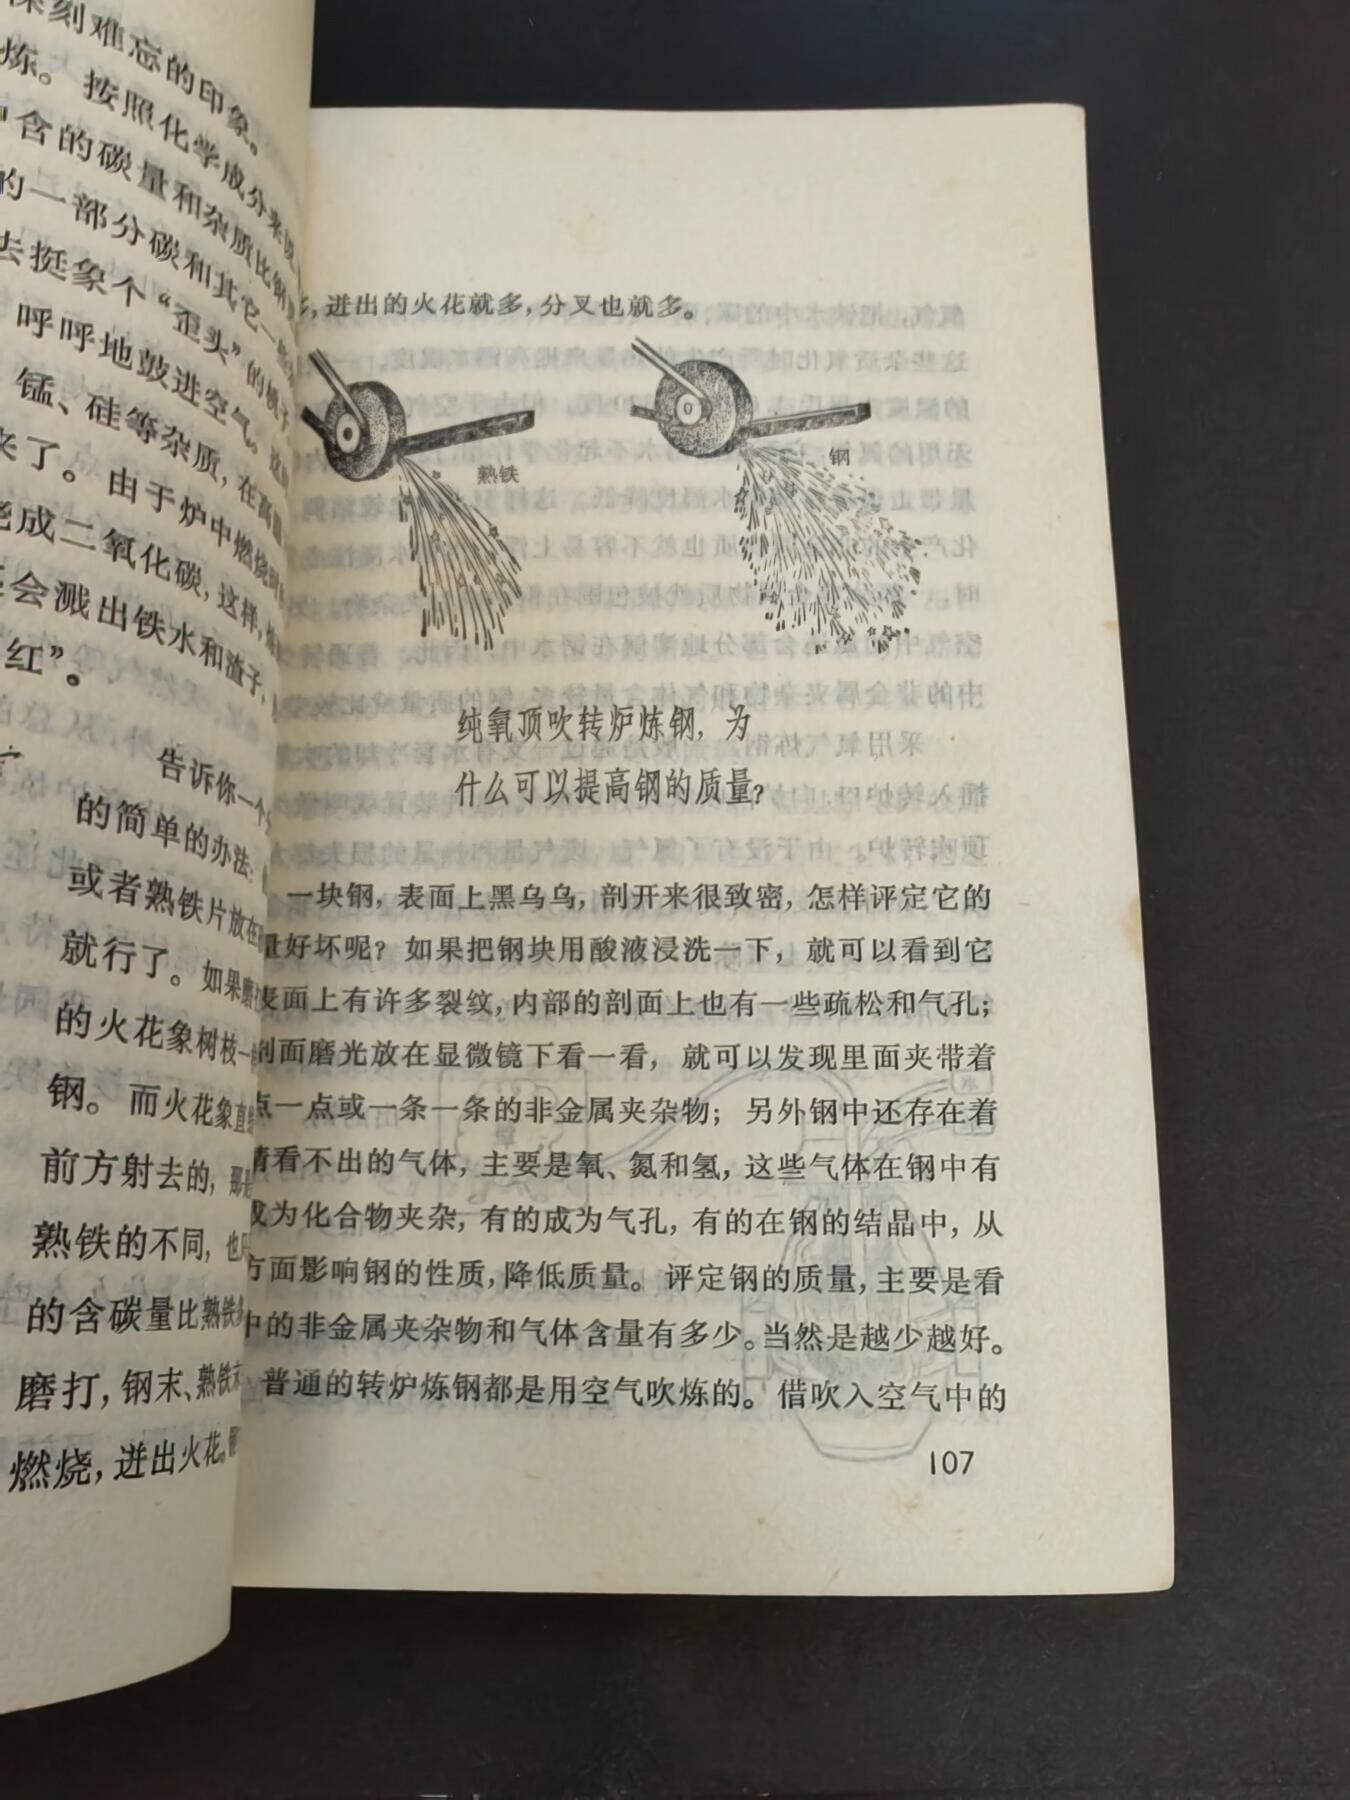 深刻难忘的印象。
炼。按照化学成分来说
中含的碳量和杂质比钢
的一部分碳和其它一些
去挺象个“歪头”的桃子
呼呼地鼓进空气。
锰、硅等杂质，在高温
来了。由于炉中燃烧
烧成二氧化碳，这样，
会溅出铁水和渣子，
红”。
告诉你一个
的简单的办法：
或者熟铁片放在
就行了。如果磨
的火花象树枝一
钢。而火花象直线
前方射去的，那是
熟铁的不同，也
的含碳量比熟铁多
磨打，钢末、熟铁末
燃烧，迸出火花。
多，迸出的火花就多，分叉也就多。
熟铁
钢
纯氧顶吹转炉炼钢，为
什么可以提高钢的质量？
一块钢，表面上黑乌乌，剖开来很致密，怎样评定它的
量好坏呢？如果把钢块用酸液浸洗一下，就可以看到它
表面上有许多裂纹，内部的剖面上也有一些疏松和气孔；
剖面磨光放在显微镜下看一看，就可以发现里面夹带着
点一点或一条一条的非金属夹杂物；另外钢中还存在着
睛看不出的气体，主要是氧、氮和氢，这些气体在钢中有
成为化合物夹杂，有的成为气孔，有的在钢的结晶中，从
方面影响钢的性质，降低质量。评定钢的质量，主要是看
中的非金属夹杂物和气体含量有多少。当然是越少越好。
普通的转炉炼钢都是用空气吹炼的。借吹入空气中的
107